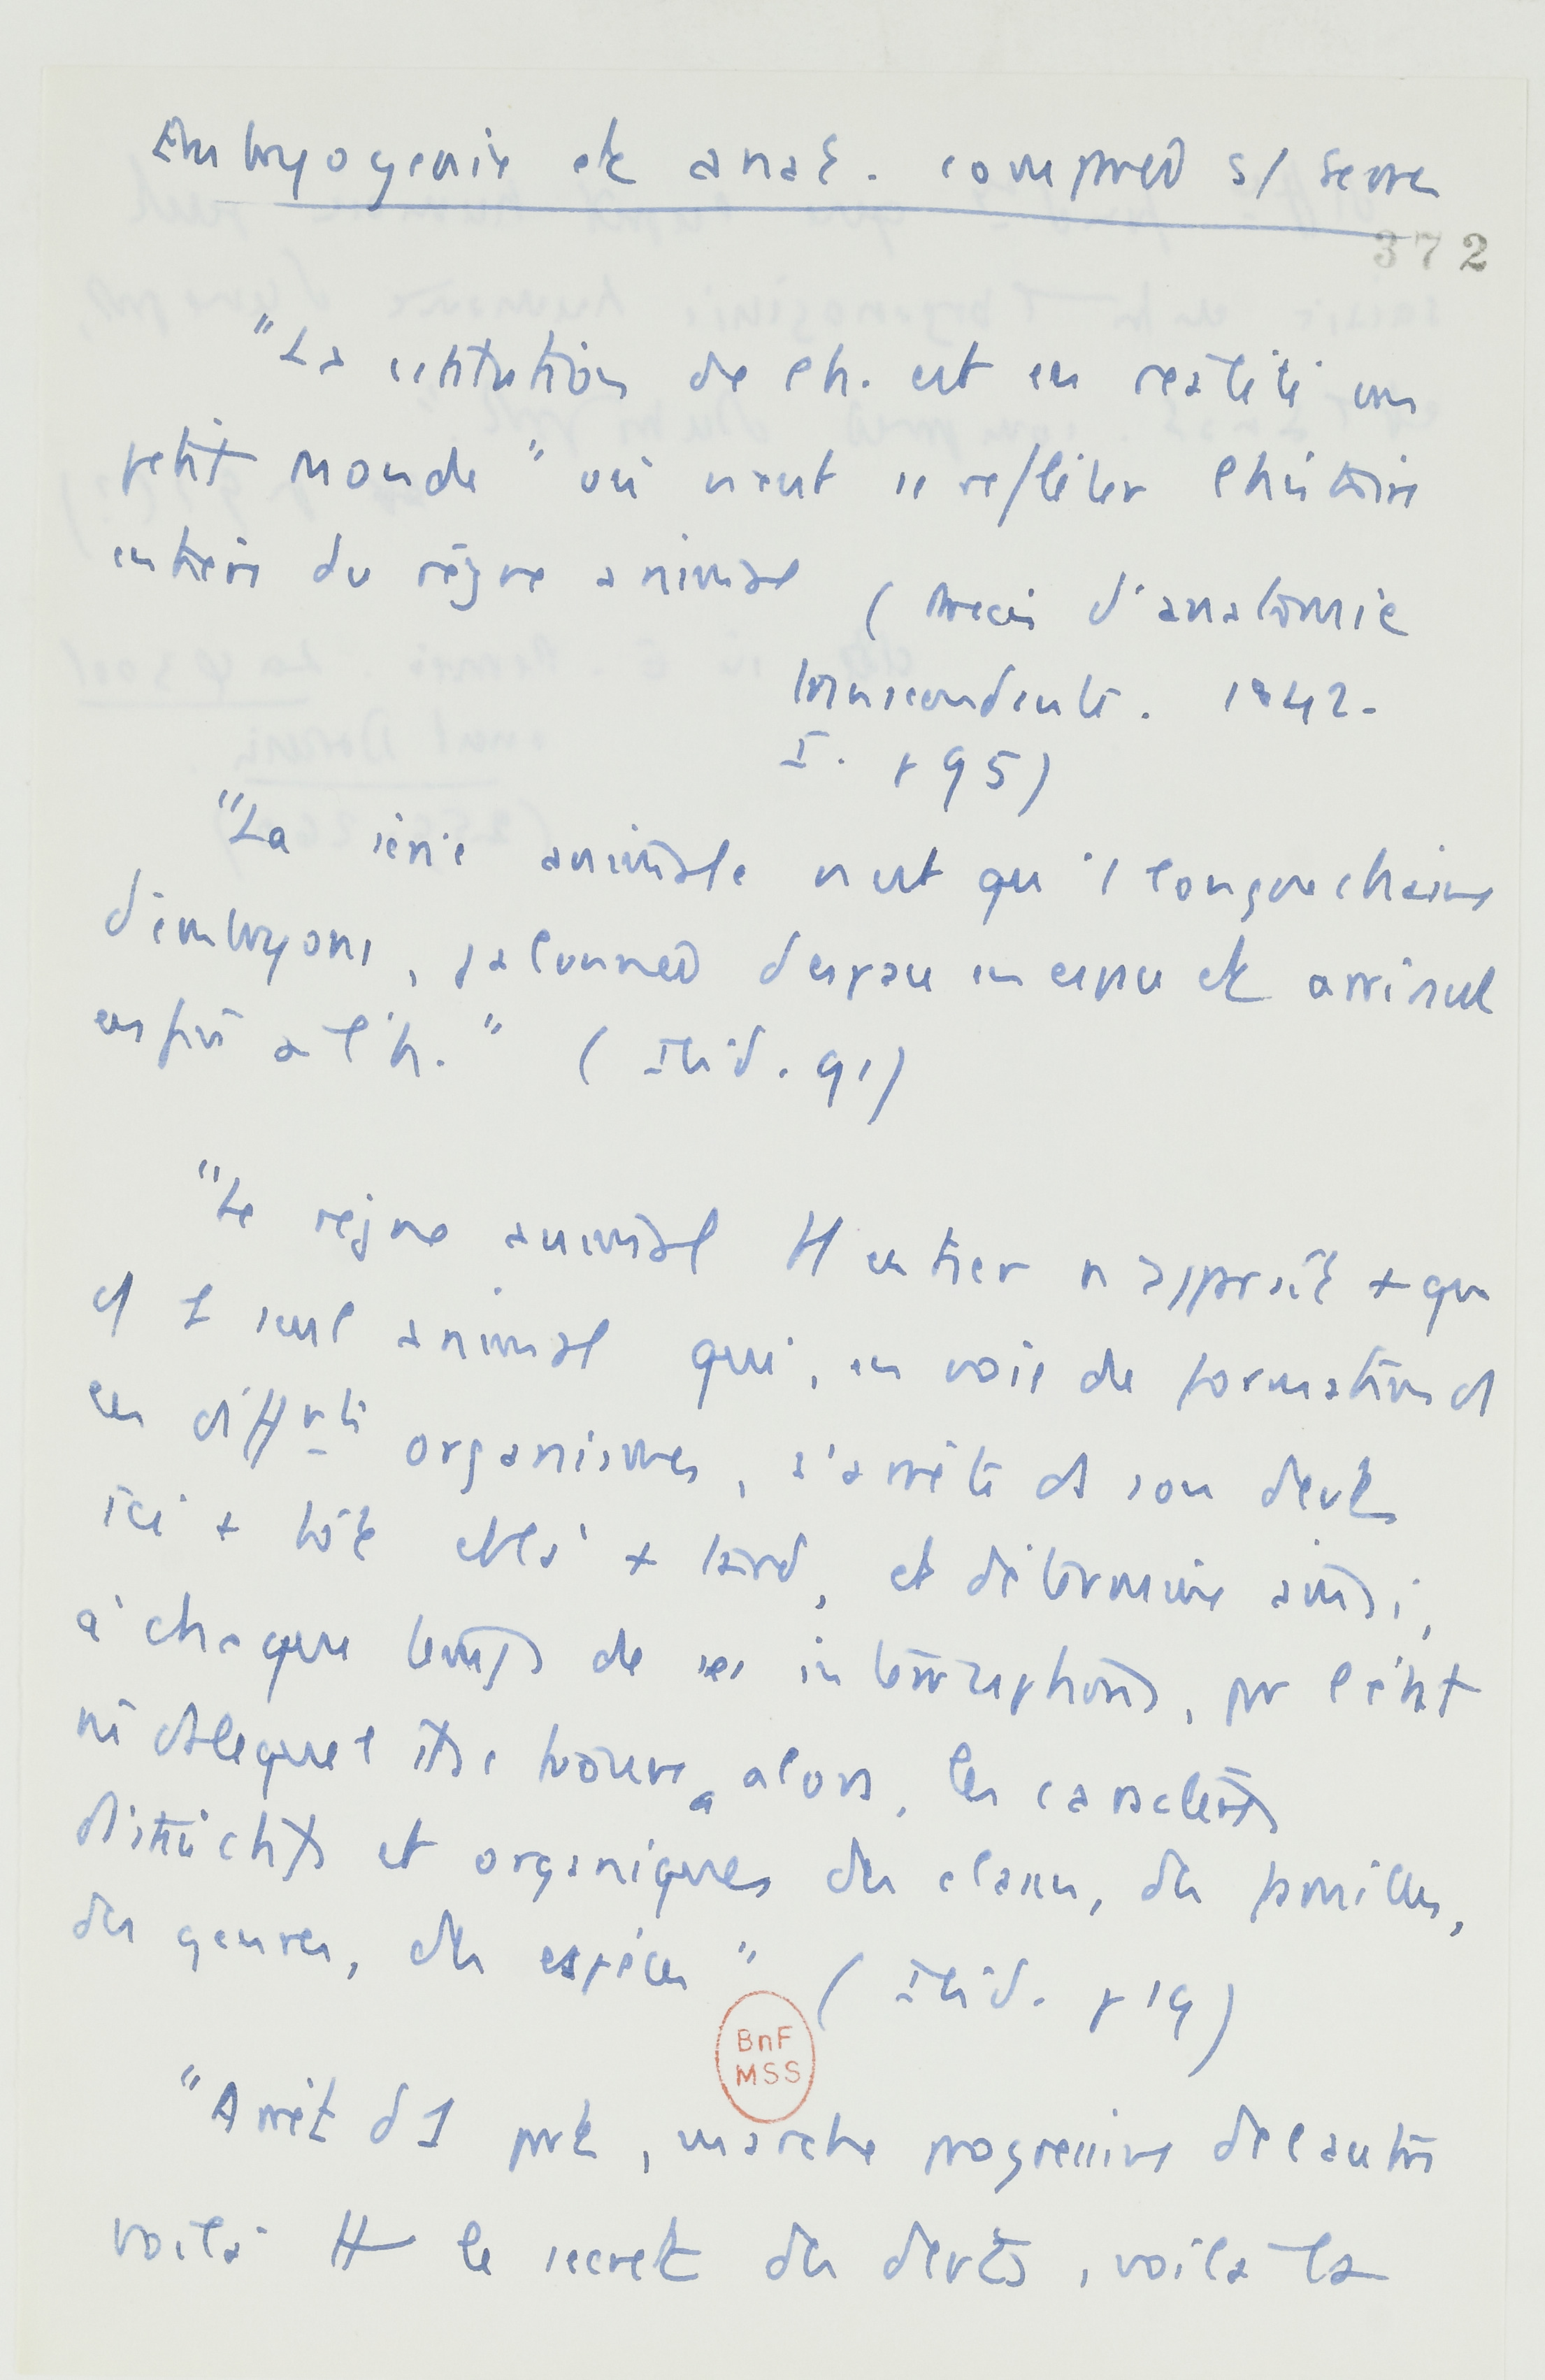 Embryogenie et anat. comparée s/ Serres
372
"La cstitution de l'h. est en realité un
petit monde" où vient se refléter l'histoire
entière du règne animal (Précis d'anatomie
transcendante. 1842.
I. p 95)
"La série animale n'est qu'1 longue chaine
d'embryons, jalonnée d'espace en espace et arrivant
enfin a l'h." (Ibid. 91)
"Le règne animal tt entier n'apparait + que
d 1 seul animal qui, en voie de formation d
les difffts organismes, s'arrête ds son devt
ici + tôt et là + tard, et détermine ainsi,
à chaque temps de ces interruptions, pr l'état
mê ds lequel il se trouve alors, les caractères
distinctifs et organiques des classes, des familles,
des genres, des espèces" (Ibid. p 19)
BnF
MSS
"Arrêt d 1 part, marche progressive de l'autre
voilà tt le secret des devts, voilà la